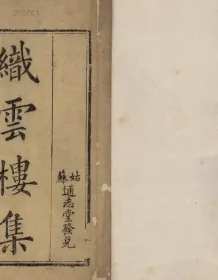 織雲樓集
姑蘇通志堂發兌